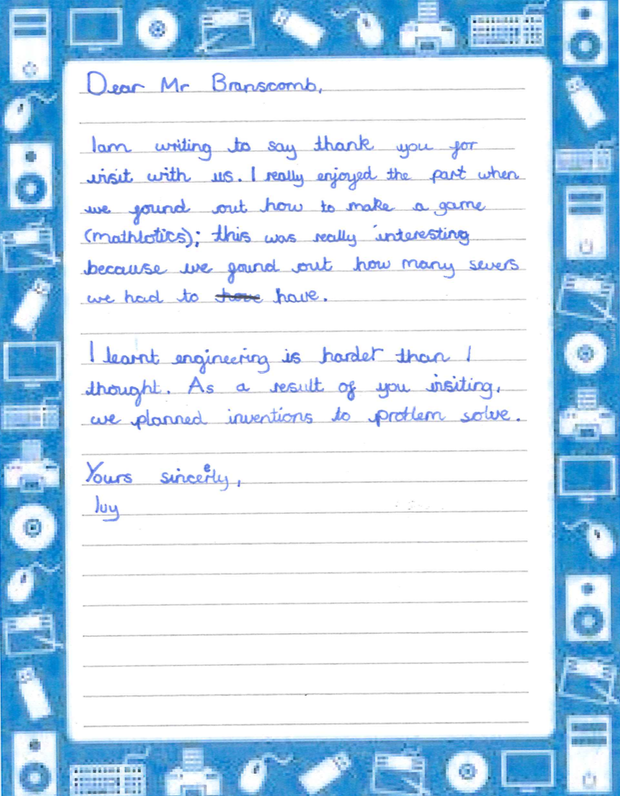 Dear Mr Branscomb,
I am writing to say thank you for
visit with us. I really enjoyed the part when
we found out how to make a game
(mathlotics); this was really interesting
because we found out how many severs
we had to have.
I learnt engineering is harder than I
thought. As a result of you visiting,
we planned inventions to problem solve.
Yours sincerely,
Ivy